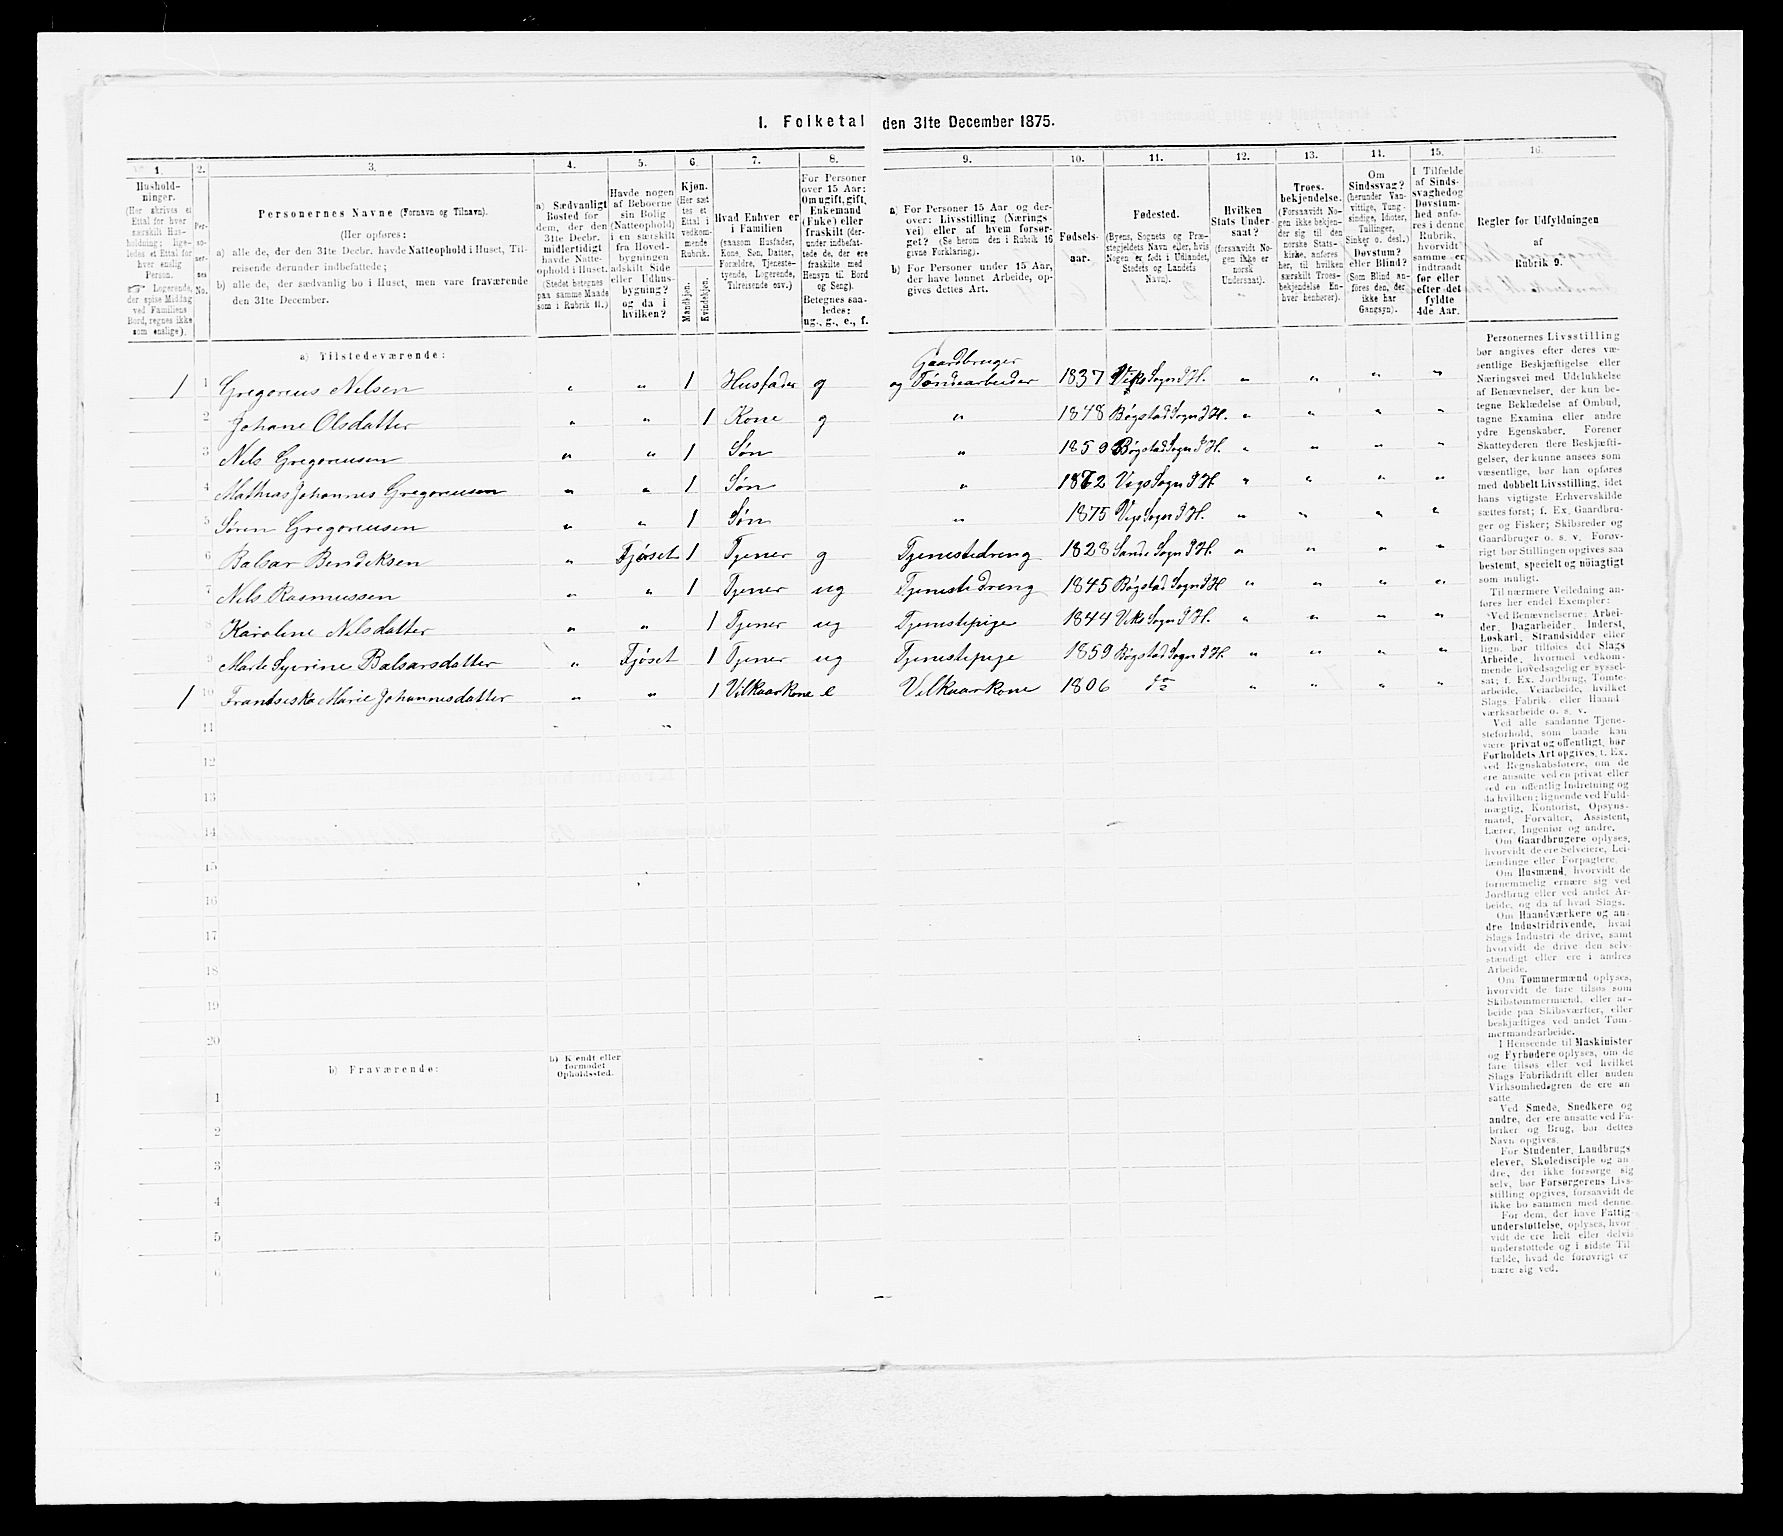 1. Folketal den 31te December 1875.
1. 2. 3. 4. 5. 6. 7. 8. 9. 10. 11. 12. 13. 14. 15. 16.
Hushold-
ninger.
(Her skrives et
Ettal for hver
særskilt Hus-
holdning; lige-
ledes et Ettal for
hver enslig
Person.
☞ Logerende,
der spise Middag
ved Familiens
Bord, regnes ikke
som enslige).
Per-
so-
ner-
nes
No.
Personernes Navne (Fornavn og Tilnavn).
(Her opføres:
a) alle de, der den 31te Decbr. havde Natteophold i Huset, Til-
reisende derunder indbefattede;
b) alle de, der sædvanlig bo i Huset, men vare fraværende
den 31te December.
a) Sædvanligt
Bosted for
dem, der den
31te Decbr.
midlertidigt
havde Natte-
ophold i Huset.
(Stedet betegnes
paa samme Maade
som i Rubrik 11.)
Havde nogen
af Beboerne
sin Bolig
(Natteophold)
i en særskilt
fra Hoved-
bygningen
adskilt Side-
eller Udhus-
bygning?
og da i
hvilken?
Kjøn.
(Her sæt-
tes et
Ettal i
vedkom-
mende
Rubrik.
Mandkjøn.
Kvindekjøn.
Hvad Enhver er
i Familien
(saasom Husfader,
Kone, Søn, Datter,
Forældre, Tjeneste-
tyende, Logerende,
Tilreisende osv.)
For Personer
over 15 Aar:
Om ugift, gift,
Enkemand
(Enke) eller
fraskilt (der-
under indbefat-
tede de, der ere
fraskilte med
Hensyn til Bord
og Seng).
Betegnes saa-
ledes:
ug., g., e., f.
a) For Personer 15 Aar og der-
over: Livsstilling (Nærings-
vei) eller af hvem forsør-
get? (Se herom den i Rubrik 16
givne Forklaring).
b) For Personer under 15 Aar,
der have lønnet Arbeide, op-
gives dettes Art.
Fødsels-
aar.
Fødested.
(Byens, Sognets og Præ-
stegjeldets Navn eller, hvis
Nogen er født i Udlandet,
Stedets og Landets
Navn).
Hvilken
Stats Under-
saat?
(forsaavidt No-
gen ikke er
norsk
Undersaat).
Troes-
bekjendelse.
(Forsaavidt No-
gen ikke bekjen-
der sig til den
norske Stats-
kirke, anføres
her, til hvilken
særskilt Troes-
bekjendelse En-
hver henhører).
Om
Sindssvag?
(herunder Van-
vittige, Tung-
sindige, Idioter,
Tullinger,
Sinker o. desl.)
Døvstum?
eller Blind?
(Som Blind an-
føres den, der
ikke har
Gangsyn).
I Tilfælde
af Sinds-
svaghed og
Døvstum-
hed anfø-
res i denne
Rubrik,
hvorvidt
samme er
indtraadt
før eller
efter det
fyldte
4de Aar.
Regler for Udfyldningen
af
Rubrik 9.
a) Tilstedeværende:
Gaardbruger
1 1 Gregorius Nilsen " " 1 Husfader g og Tøndearbeider 1837 Viks Sogn I H. " " " "
2 Johane Olsdatter " " 1 Kone g " 1848 Bøgstad Sogn I H. " " " "
3 Nils Gregoriusen " " 1 Søn " 1859 Bøgstad Sogn I H. " " " "
4 Mathias Johannes Gregoriusen " " 1 Søn " 1872 Vigs Sogn I H. " " " "
5 Søren Gregoriusen " " 1 Søn " 1875 Vigs Sogn I H. " " " "
6 Balsar Bendiksen " Fjøset 1 Tjener g Tjenestedreng 1828 Sande Sogn I H. " " " "
7 Nils Rasmussen " " 1 Tjener ug Tjenestedreng 1845 Bøgstad Sogn I H " " " "
8 Karoline Nilsdatter " " 1 Tjener ug Tjenestepige 1844 Viks Sogn I H. " " " "
9 Marte Syvrine Balsarsdatter " Fjøset 1 Tjener ug Tjenestepige 1859 Bøgstad Sogn I H. " " " "
1 10 Frandsiska Marie Johannesdatter " " 1 Vilkaarkone e Vilkaarkone 1806 do " " " "
11 " "
12
13
14
15
16
17
18
19
20
b) Fraværende:
b) Kjendt eller
formodet
Opholdssted.
1
2
3
4
5
6
Personernes Livsstilling
bør angives efter deres væ-
sentlige Beskjæftigelse eller
Næringsvei med Udelukkelse
af Benævnelser, der kun be-
tegne Beklædelse af Ombud,
tagne Examina eller andre
ydre Egenskaber. Forener
Skatteyderen flere Beskjæfti-
gelser, der kunne ansees som
væsentlige, bør han opføres
med dobbelt Livsstilling, idet
hans vigtigste Erhvervskilde
sættes først; f. Ex. Gaardbru-
ger og Fisker; Skibsreder og
Gaardbruger o. s. v. Forøv-
rigt bør Stillingen opgives saa
bestemt, specielt og nøiagtigt
som muligt.
Til nærmere Veiledning an-
føres her endel Exempler:
Ved Benævnelserne: Arbei-
der, Dagarbeider, Inderst,
Løskarl, Strandsidder eller
lign. bør tilføies det Slags
Arbeide, hvormed vedkom-
mende hovedsagelig er syssel-
sat; f. Ex. Jordbrug, Tomte-
arbeide, Veiarbeide, hvilket
Slags Fabrik- eller Haand-
værksarbeide o. s. v.
Ved alle saadanne Tjene-
steforhold, som baade kan
være privat og offentligt, bør
Forholdets Art opgives, t. Ex.
ved Regnskabsførere, om de
ere ansatte ved en privat eller
ved en offentlig Indretning og
da hvilken; lignende ved Fuld-
mægtig, Kontorist, Opsyns-
mand, Forvalter, Assistent,
Lærer, Ingeniør og andre.
Om Gaardbrugere oplyses,
hvorvidt de ere Selveiere, Lei-
lændinge eller Forpagtere.
Om Husmænd, hvorvidt de
fornemmelig ernære sig ved
Jordbrug eller ved andet Ar-
beide, og da af hvad Slags.
Om Haandværkere og an-
dre Industridrivende, hvad
Slags Industri de drive, samt
hvorvidt de drive den selv-
stændigt eller ere i andres
Arbeide.
Om Tømmermænd oplyses,
hvorvidt de fare tilsøs som
Skibstømmermænd, eller ar-
beide paa Skibsværfter, eller
beskjæftiges ved andet Tøm-
mermandsarbeide.
I Henseende til Maskinister
og Fyrbødere oplyses, om de
fare tilsøs eller ved hvilket
Slags Fabrikdrift eller anden
Virksomhedsgren de ere an-
satte.
Ved Smede, Snedkere og
andre, der ere ansatte ved Fa-
briker og Brug, bør dettes
Navn opgives.
For Studenter, Landbrugs-
elever, Skoledisciple og an-
dre, der ikke forsørge sig
selv, bør Forsørgerens Livs-
stilling opgives, forsaavidt de
ikke bo sammen med denne.
For dem, der have Fattig-
understøttelse, oplyses, hvor-
vidt de ere helt eller delvis
understøttede og i sidste Til-
fælde, hvad de forøvrigt er-
nære sig ved.